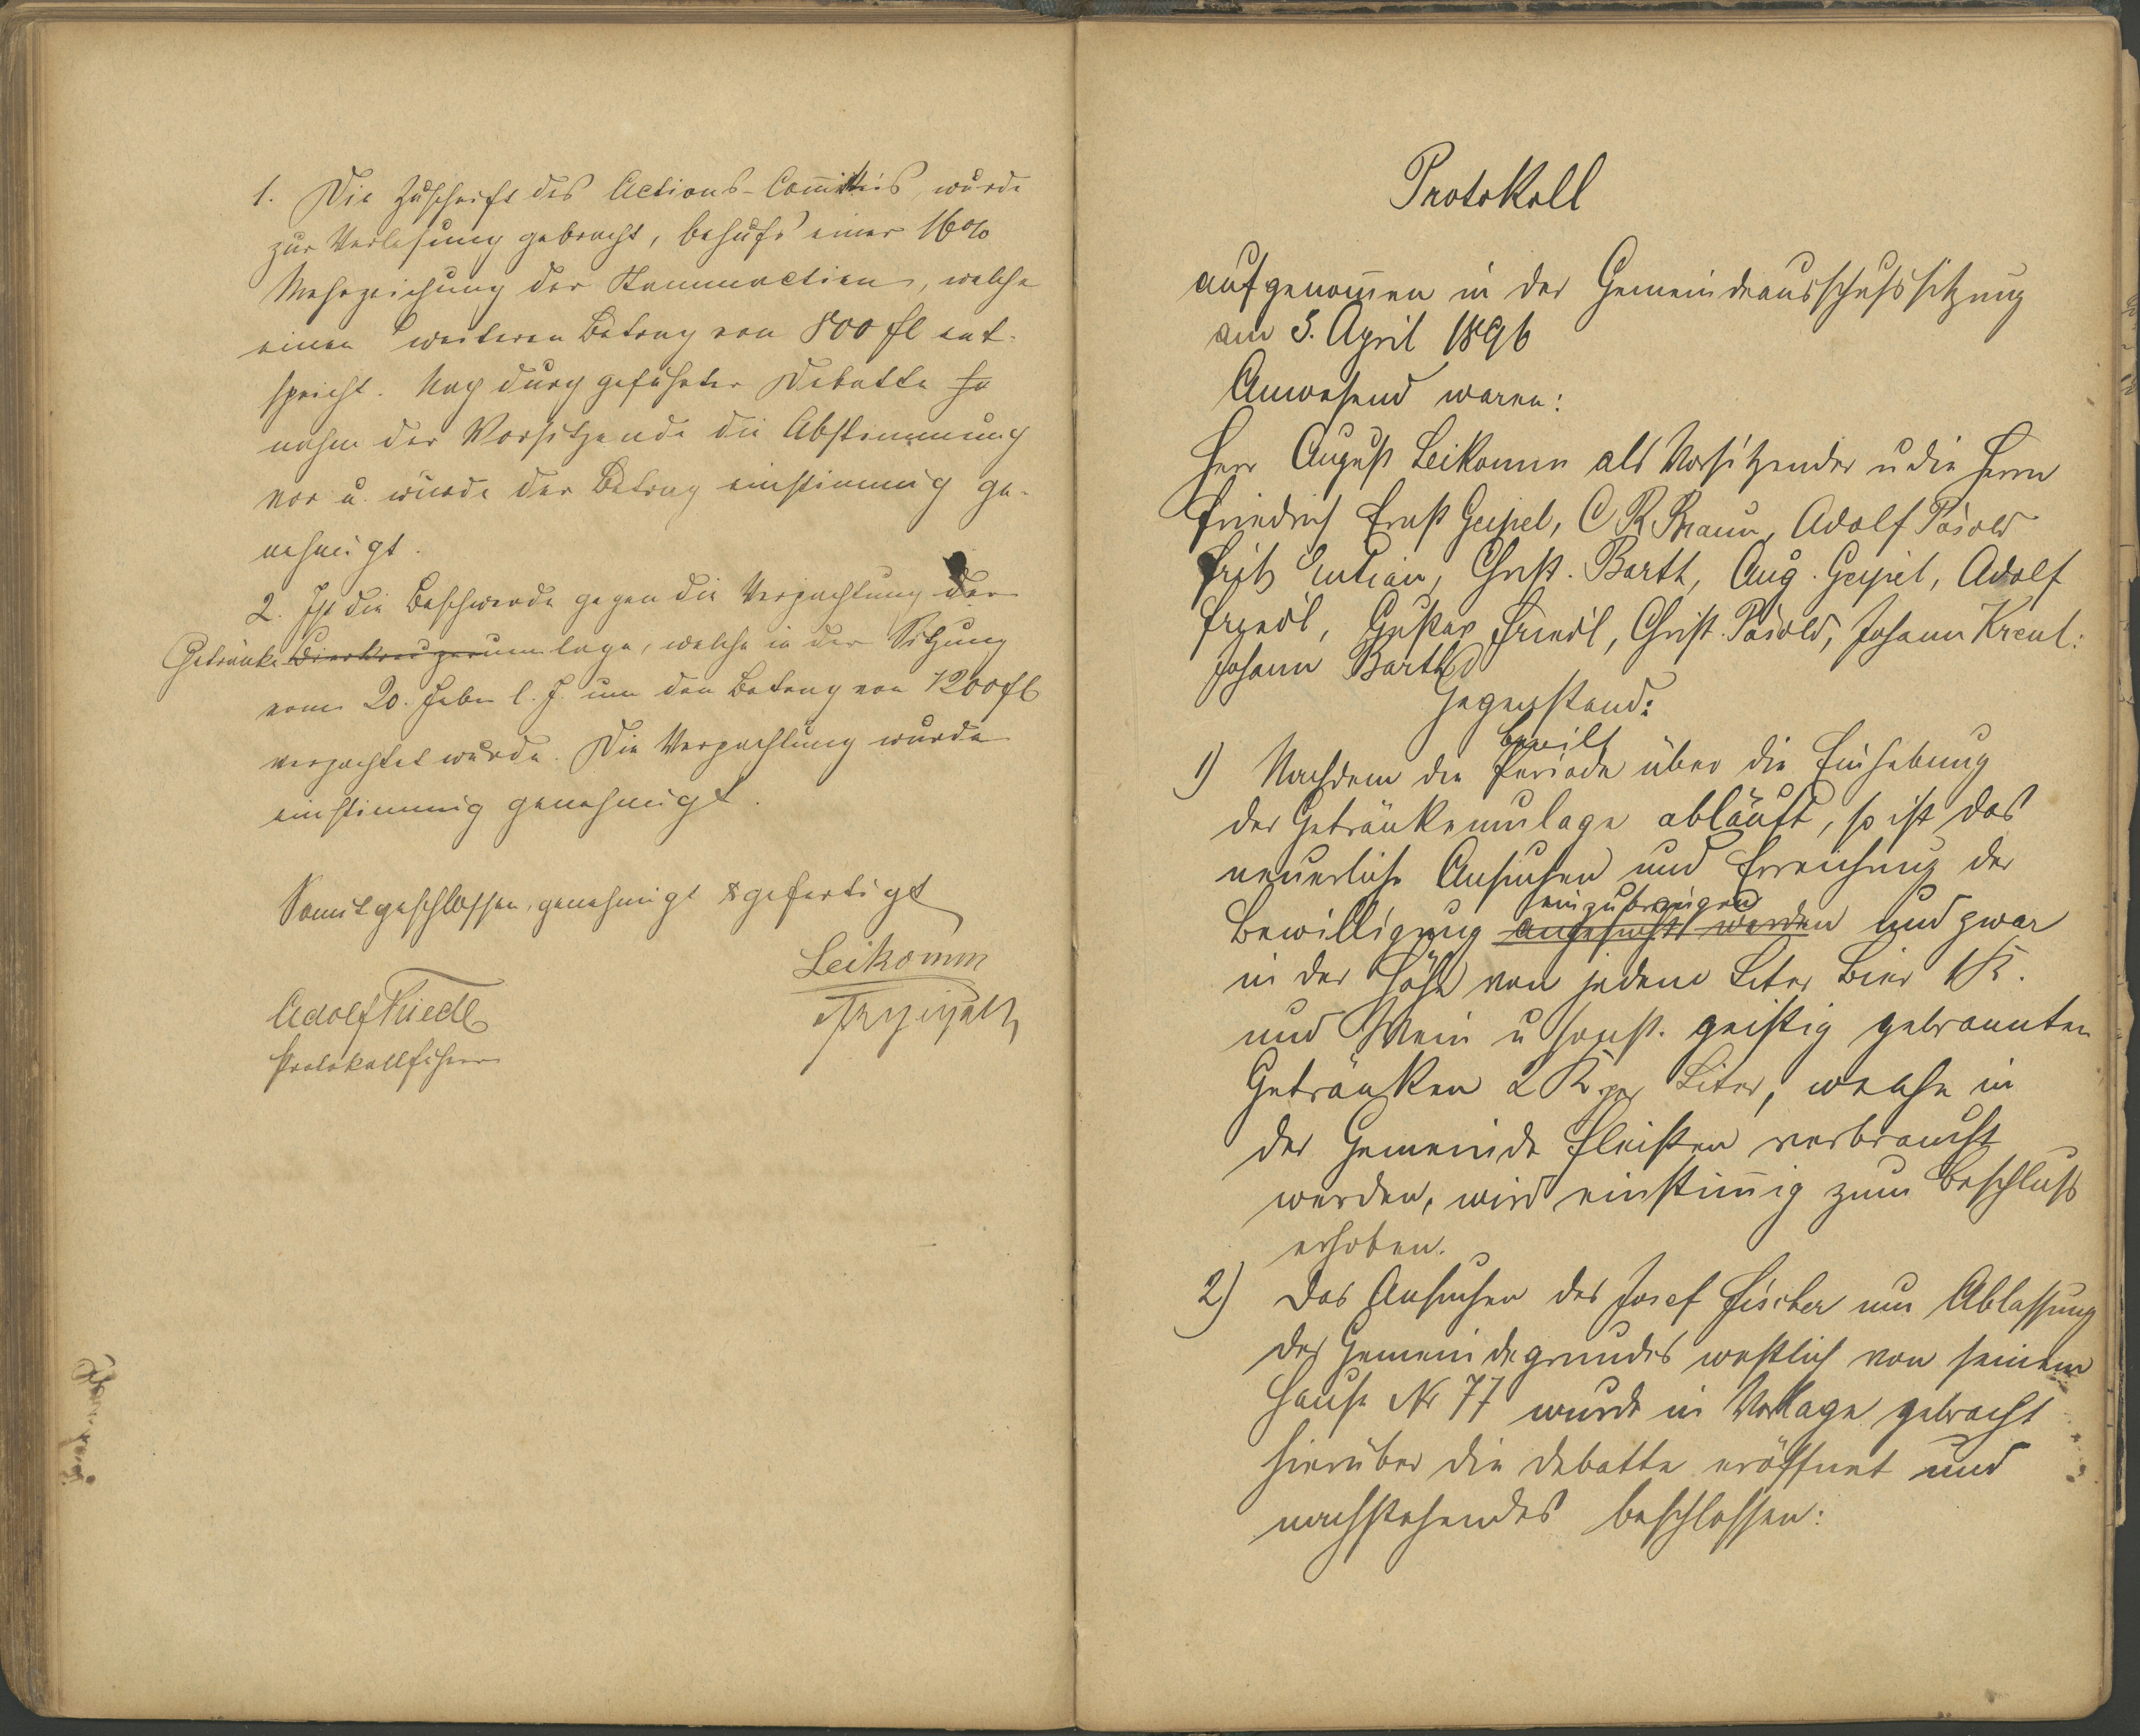 1. Die Zuschrift des Actions-Comités wurde
zur Verlesung gebracht, behufs einer 16%
Mehrzeichung der Stammactien, welche
einen weiteren Betrag von 800 fl ent-
spricht. Nach durchgeführter Debatte
nahm der Vorsitzende die Abstimmung
vor u. wurde der Betrag einstimmig ge-
nehmigt.
2. Ist die Beschwerde gegen die Verpachtung der
Getränke Bierkreuzerumlage, welche in der Sitzung
vom 20. Feber l. J. um den Betrag von 1200 fl
verpachtet wurde. Die Verpachtung wurde
einstimmig genehmigt.
Somit geschlossen, genehmigt & gefertigt
Leikomm
Adolf Friedl
Protokollführer
Protokoll
aufgenom̄en in der Gemeindeausschußsitzung
am 3. April 1896
Anwesend waren:
Herr August Leikomm als Vorsitzender u die Herrn
Friedrich Ernst Geipel, C R Braun, Adolf Pösold
Fritz Christ. Barth, Aug. Geipel, Adolf
Friedl, Gustav Friedl, Christ. Pösold, Johann Kreul:
Johann Barth
Gegenstand:
bewilt
1) Nachdem die Periode über die Einhebung
der Getränkeumlage abläuft, so ist das
neuerliche Ansuchen und Erreichung der
einzubringen
Bewilligung angesucht werden und zwar
in der Höhe von jedem Liter Bier 1 K.
und Wein u sonst. geistig gebrannten
Getränken 2 K per Liter, welche in
der Gemeinde Fleißen verbraucht
werden, wird einstim̄ig zum Beschluß
erhoben.
2) Das Ansuchen des Josef Fischer um Ablassung
des Gemeindegrundes westlich von seinem
Hause Nr 77 wurde in Vorlage gebracht
hierüber die Debatte eröffnet und
nachstehendes beschlossen: